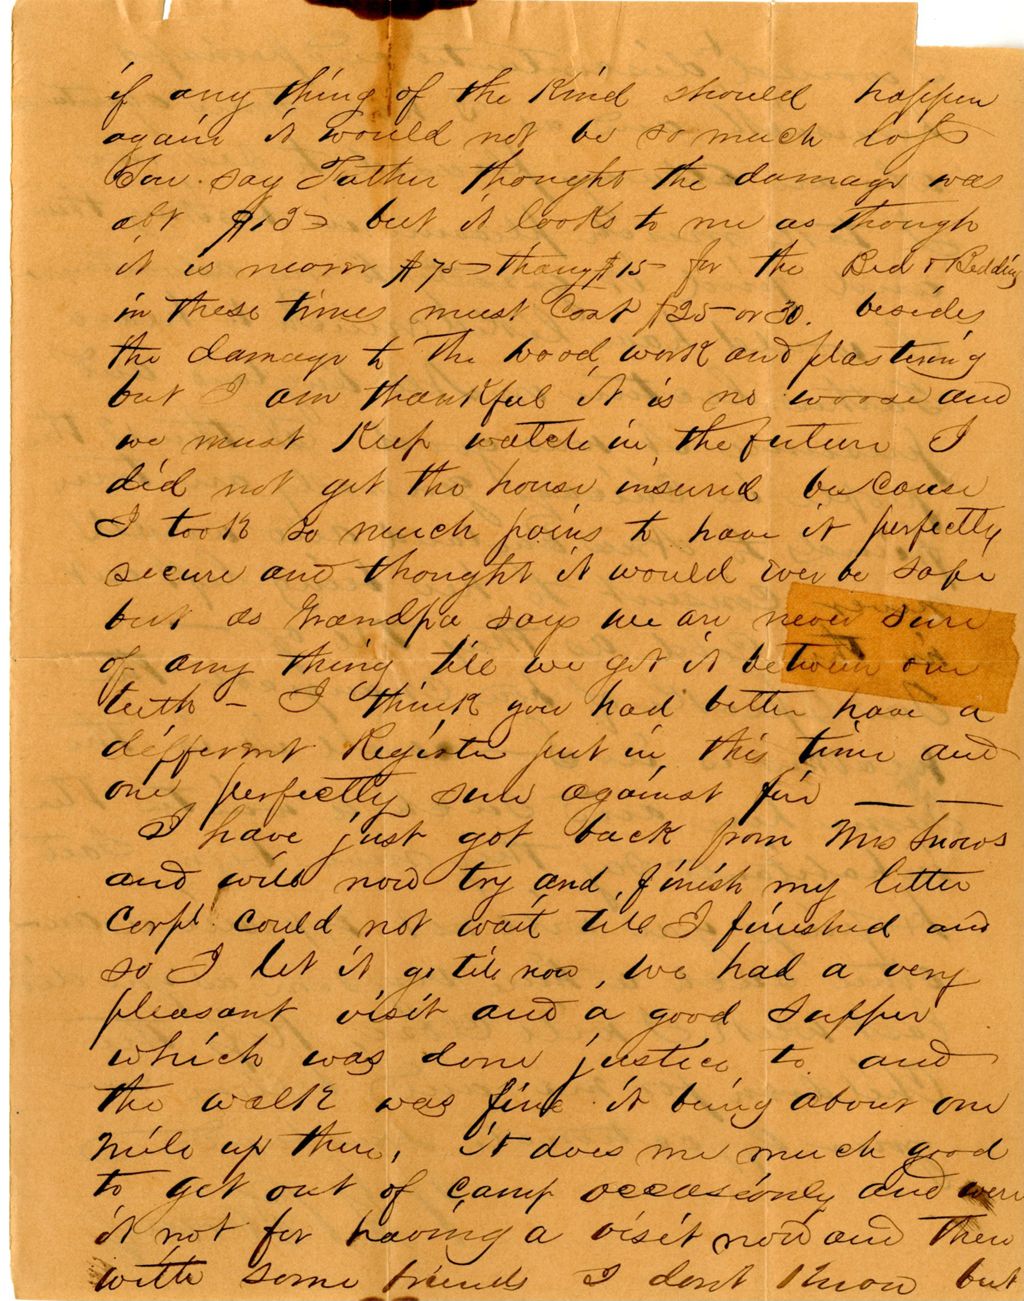 if any thing of the Kind should happen
again it would not be so much loss
You say Father thought the damage was
abt but it looks to me as though
it is nearer $75 than $15 for the Bed & Bedding
in these times must Cost $25 or 30. besides
the damage to the wood work and plastering
but I am thankful it is no worse and
we must Keep watch in the future I
did not get the house insured because
I took so much pains to have it perfectly
secure and thought it would ever be safe
but as Grandpa says we are never sure
of any thing till we get it between our
teeth – I think you had better have a
different Register put in this time and
one perfectly sure against fire — —
I have just got back from Mrs Snows
and will now try and finish my letter
Corpl. could not wait till I finished and
so I let it go till now, we had a very
pleasant visit and a good Supper
which was done justice to and
the walk was fine it being about one
Mile up there, it does me much good
to get out of camp occasionly and were
it not for having a visit now and then
with some friends I dont Know but